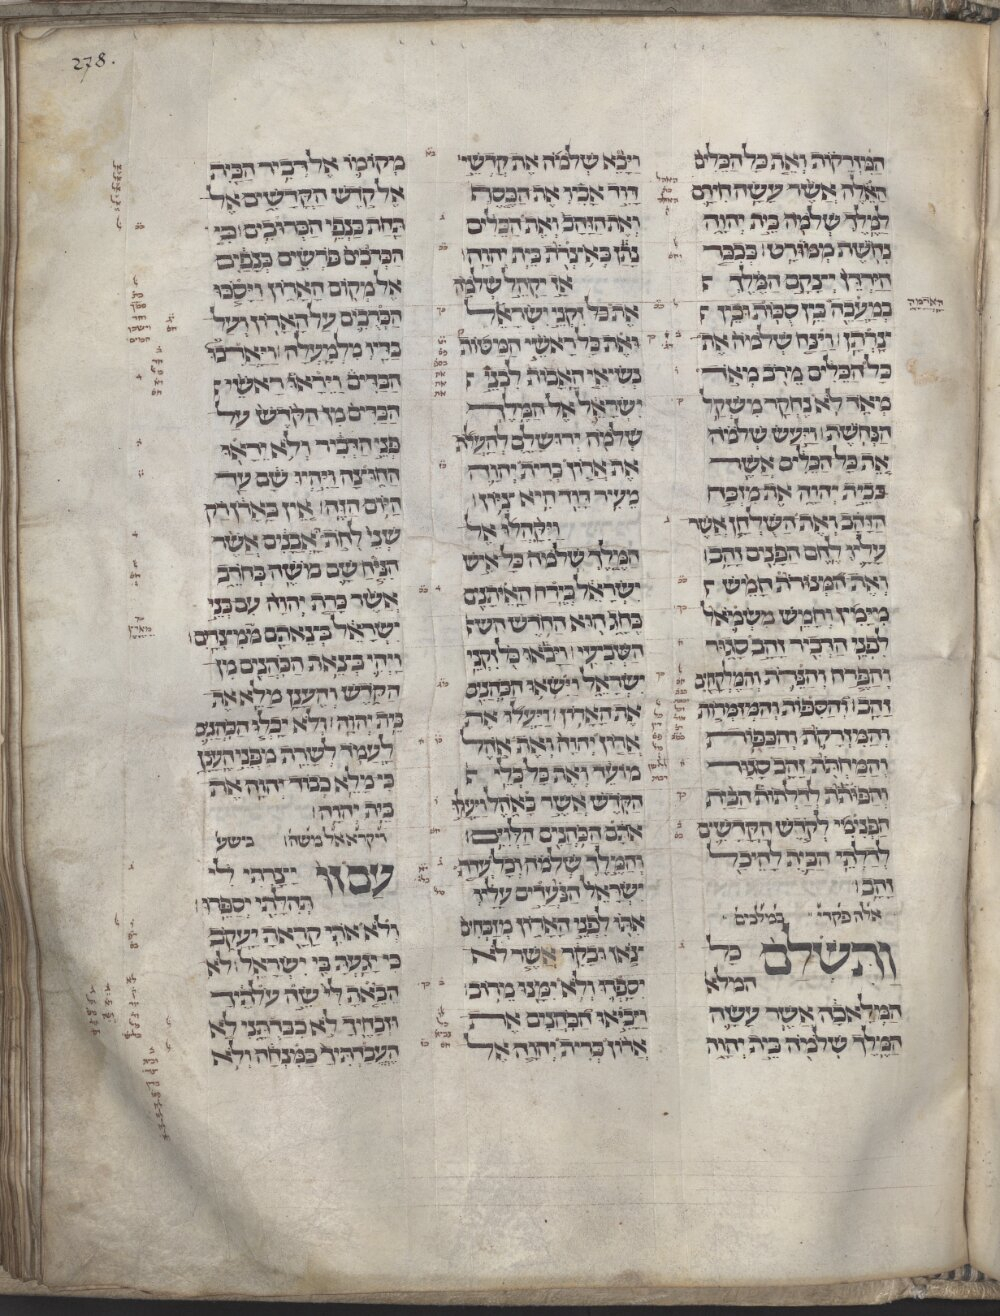 278.
המזרקות ואת כל הכלים
האלה אשר עשה חירם
למלך שלמה בית יהוה
נחשת ממורט בככר
הירדן יצקם המלך
במעבה בין סכות ובין
צרתן וינח שלמה את
כל הכלים מרב מאד
מאד לא נחקר משקל
הנחשת ויעש שלמה
את כל הכלים אשר
בבית יהוה את מזבח
הזהב ואת השלחן אשר
עליו לחם הפנים זהב
ואת המנורת חמש
מימין וחמש משמאל
לפני הדביר זהב סגור
והפרח והנרת והמלקחים
זהב והספות והמזמרות
והמזרקת והכפות
והמחתת זהב סגור
והפותת לדלתות הבית
הפנימי לקדש הקדשים
לדלתי הבית להיכל
זהב
אלה פקודי במלכים
ותשלם כל
המלא
המלאכה אשר עשה
המלך שלמה בית יהוה
ויבא שלמה את קדשי
דוד אביו את הכסף
ואת הזהב ואת הכלים
נתן באצרת בית יהוה
אז יקהל שלמה
את כל זקני ישראל
ואת כל ראשי המטות
נשיאי האבות לבני
ישראל אל המלך
שלמה ירושלם להעלות
את ארון ברית יהוה
מעיר דוד היא ציון
ויקהלו אל
המלך שלמה כל איש
ישראל בירח האיתנים
בחג הוא החדש הש
השביעי ויבאו כל זקני
ישראל וישאו הכהנים
את הארון ויעלו את
ארון יהוה ואת אהל
מועד ואת כל כלי
הקדש אשר באהל ויעלו
אתם הכהנים הלוים
והמלך שלמה וכל עדת
ישראל הנועדים עליו
אתו לפני הארון מזבחים
צאן ובקר אשר לא
יספרו ולא ימנו מרוב
ויבאו הכהנים את
ארון ברית יהוה אל
מקומו אל דביר הבית
אל קדש הקדשים אל
תחת כנפי הכרובים כי
הכרבים פרשים כנפים
אל מקום הארון ויסכו
הכרבים על הארון ועל
בדיו מלמעלה ויארכו
הבדים ויראו ראשי
הבדים מן הקדש על
פני הדביר ולא יראו
החוצה ויהיו שם עד
היום הזה אין בארון רק
שני לחת אבנים אשר
הניח שם משה בחרב
אשר כרת יהוה עם בני
ישראל בצאתם ממצרים
ויהי בצאת הכהנים מן
הקדש והענן מלא את
בית יהוה ולא יכלו הכהנים
לעמד לשרת מפני הענן
כי מלא כבוד יהוה את
בית יהוה
ויקרא אל משה בישע
עם זו יצרתי לי
תהלתי יספרו
ולא אתי קראת יעקב
כי יגעת בי ישראל לא
הבאת לי שה עלתיך
וזבחיך לא כבדתני לא
העבדתיך במנחה ולא